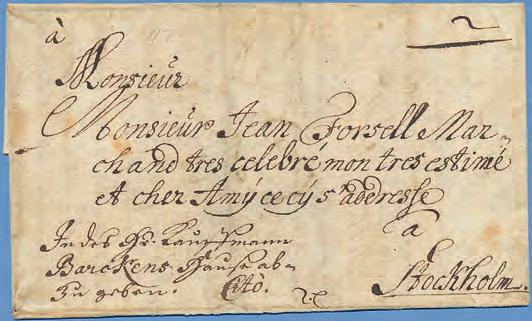 à
2
Monsieur
Monsieur Jean Forsell Mar-
chand tres celebré mon tres estimé
et cher Amÿ ce cÿ s'adderesse
a
Stockholm.
In des Hr. Kauffmann
Barckens Hause ab-
zu geben. Citò.